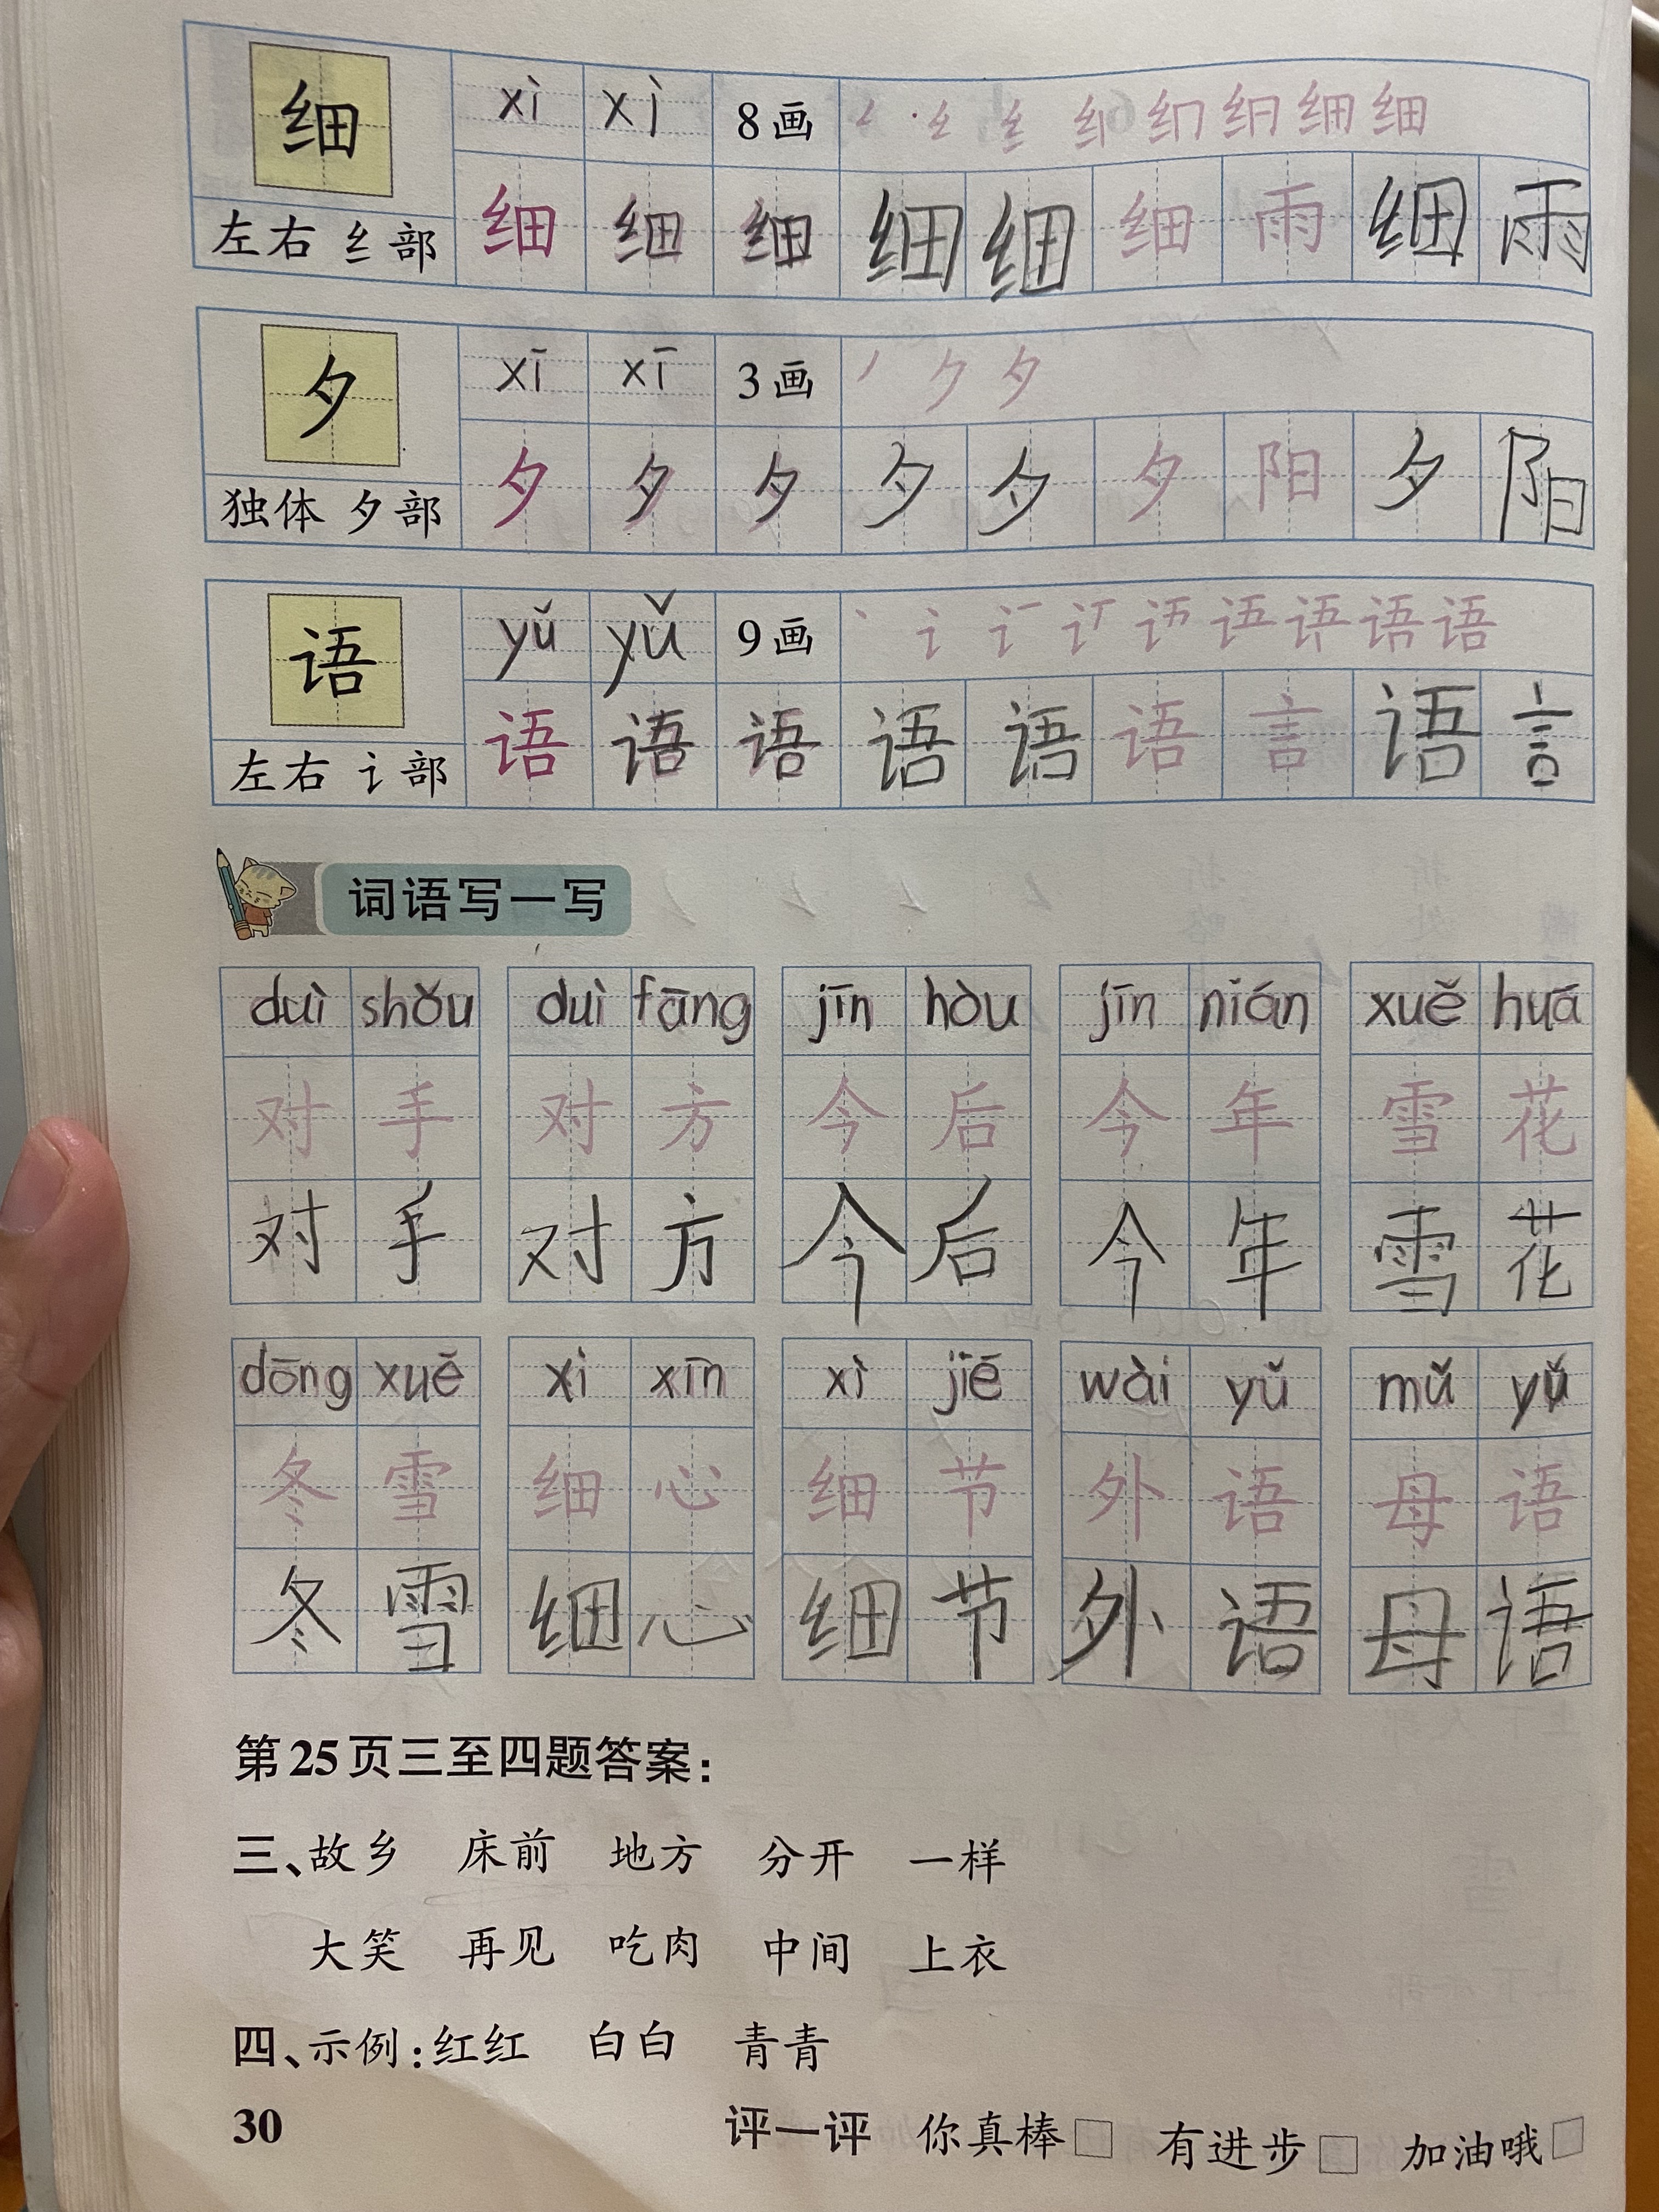 细 xì xì 8画 纟 纟 纟 细 细
左右 纟部 细 细 细 细 细 细 雨 细 雨
夕 xī xī 3画 丿 夕
独体 夕部 夕 夕 夕 夕 夕 夕 阳 夕 阳
语 yǔ yǔ 9画 丶 讠 语
左右 讠部 语 语 语 语 语 语 言 语 言
词语写一写
duì shǒu duì fāng jīn hòu jīn nián xuě huā
对手 对方 今后 今年 雪花
对手 对方 今后 今年 雪花
dōng xuě xì xīn xì jiē wài yǔ mǔ yǔ
冬雪 细心 细节 外语 母语
冬雪 细心 细节 外语 母语
第25页三至四题答案：
三、故乡 床前 地方 分开 一样
大笑 再见 吃肉 中间 上衣
四、示例：红红 白白 青青
30 评一评 你真棒□ 有进步□ 加油哦□